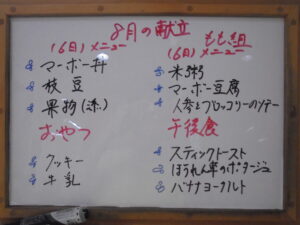 8月の献立
(6日) メニュー
マーボー丼
枝豆
果物(添)
おやつ
クッキー
牛乳
もも組
(6日) メニュー
米粥
マーボー豆腐
人参とブロッコリーのソテー
午後食
スティックトースト
ほうれん草のポタージュ
バナナヨーグルト